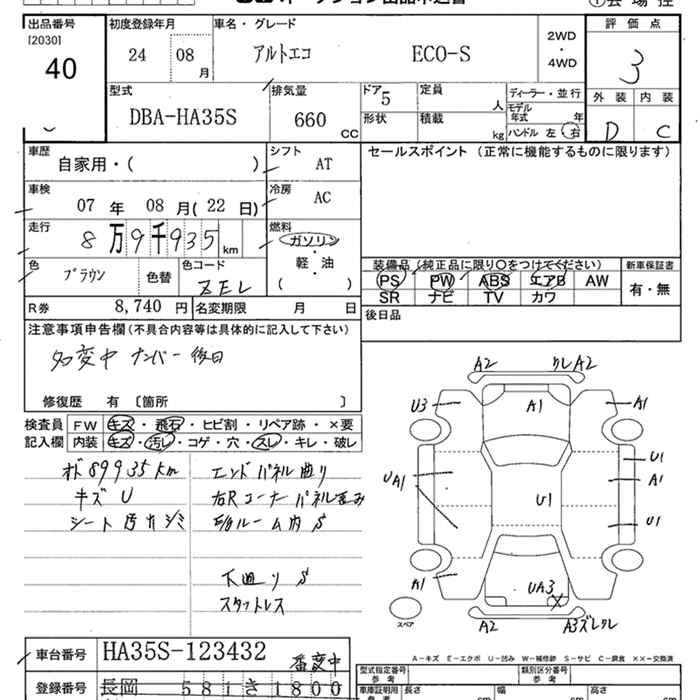 出品番号 初度登録年月 車名・グレード 評価点
[2030]
40
24 08 月 アルトエコ ECO-S 2WD・4WD 3
型式 排気量 ドア 5 定員 人 ディーラー・並行 外装 内装
DBA-HA35S 660 cc 形状 積載 kg モデル年式 年
ハンドル 左 右 D C
車歴 シフト セールスポイント (正常に機能するものに限ります)
自家用・( ) AT
車検 冷房
07 年 08 月 (22 日) AC
走行 燃料
8万9千935 km ガソリン
軽・油
( )
色 ブラウン 色替 色コード ZEL
装備品 (純正品に限り○をつけてください) 新車保証書
PS PW ABS エアB AW 有・無
SR ナビ TV カワ
R券 8,740 円 名変期限 月 日 後日品
注意事項申告欄 (不具合内容等は具体的に記入して下さい)
名変中 ナンバー後日
修復歴 有 〔箇所 〕
検査員 FW キズ・飛石・ヒビ割・リペア跡・×要
記入欄 内装 キズ・汚レ・コゲ・穴・スレ・キレ・破レ
メーター 89935km エンドパネル曲り
キズ U 右Rコーナーパネル歪み
シート 汚レシミ
下廻りS
スタットレス
A2 クレA2
U3 A1 A1
UA1 U1 U1
A1
U1
A1 UA3 X
スペア A2 A3ズレクレ
A-キズ E-エクボ U-凹み W-補修跡 S-サビ C-腐食 ××-交換済
車台番号 HA35S-123432 番変中
登録番号 長岡 581 き 1800
型式指定番号 類別区分番号
車庫証明用参考 長さ cm 幅 cm 高さ cm